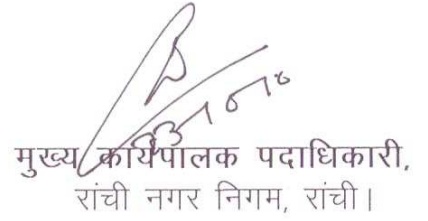 मुख्य कार्यपालक पदाधिकारी,
रांची नगर निगम, रांची।